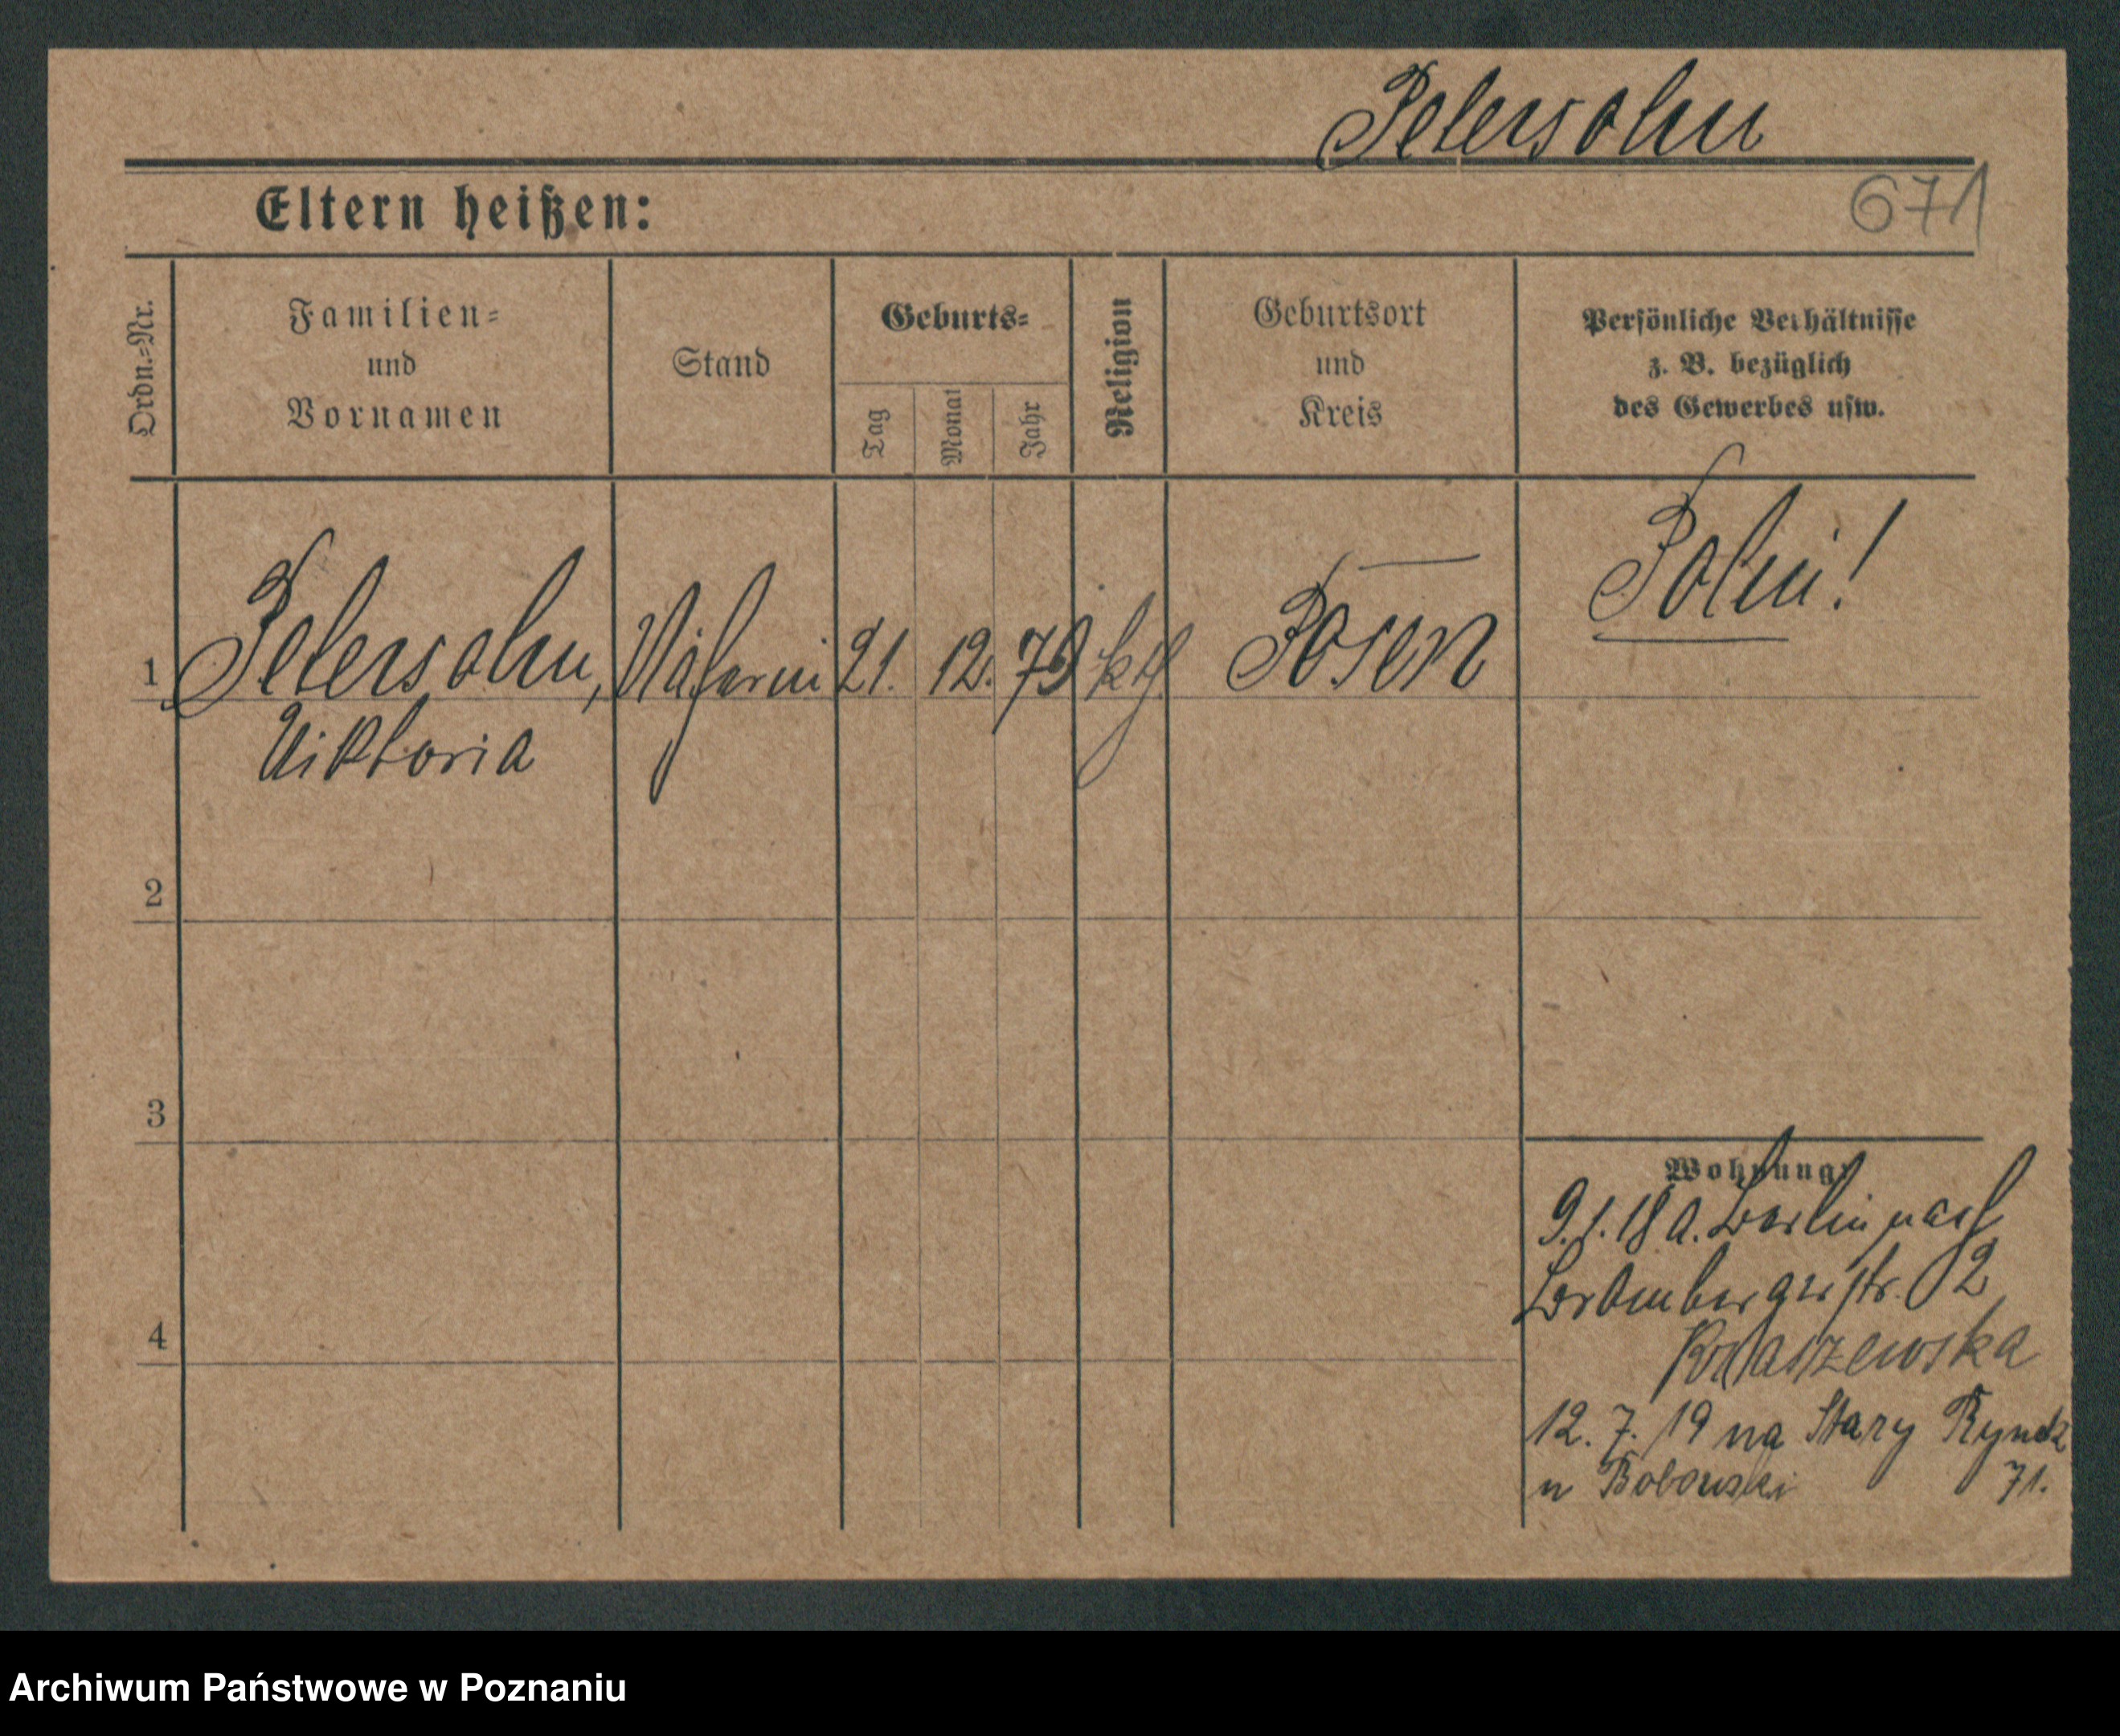 Petersohn
671
Eltern heißen:
Ordn.-Nr.
Familien- und Vornamen
Stand
Geburts-
Tag
Monat
Jahr
Religion
Geburtsort und Kreis
Persönliche Verhältnisse z. B. bezüglich des Gewerbes usw.
1 Petersohn, Näherin 21. 12. 79 kth. Posen Polin!
Viktoria
2
3
4
Wohnung:
9.1.18 a. Berlin nach
str. 2
12. 7. 19 na Stary Rynek
u Bobowski 71.
Archiwum Państwowe w Poznaniu